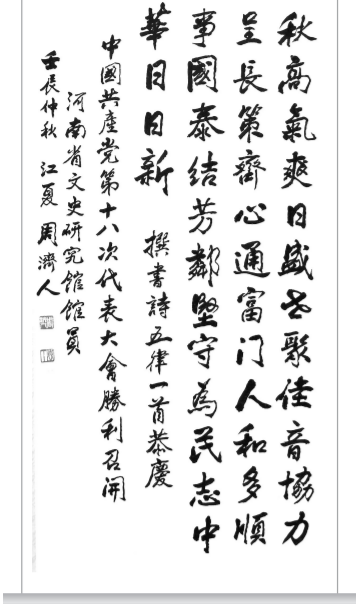 秋高氣爽日盛世聚佳音協力
呈長策齊心通富门人和多順
事國泰结芳鄰堅守為民志中
華日日新 撰書詩五律一首恭慶
中國共產党第十八次代表大會勝利召開
河南省文史研究館館員
壬辰仲秋 江夏周濟人